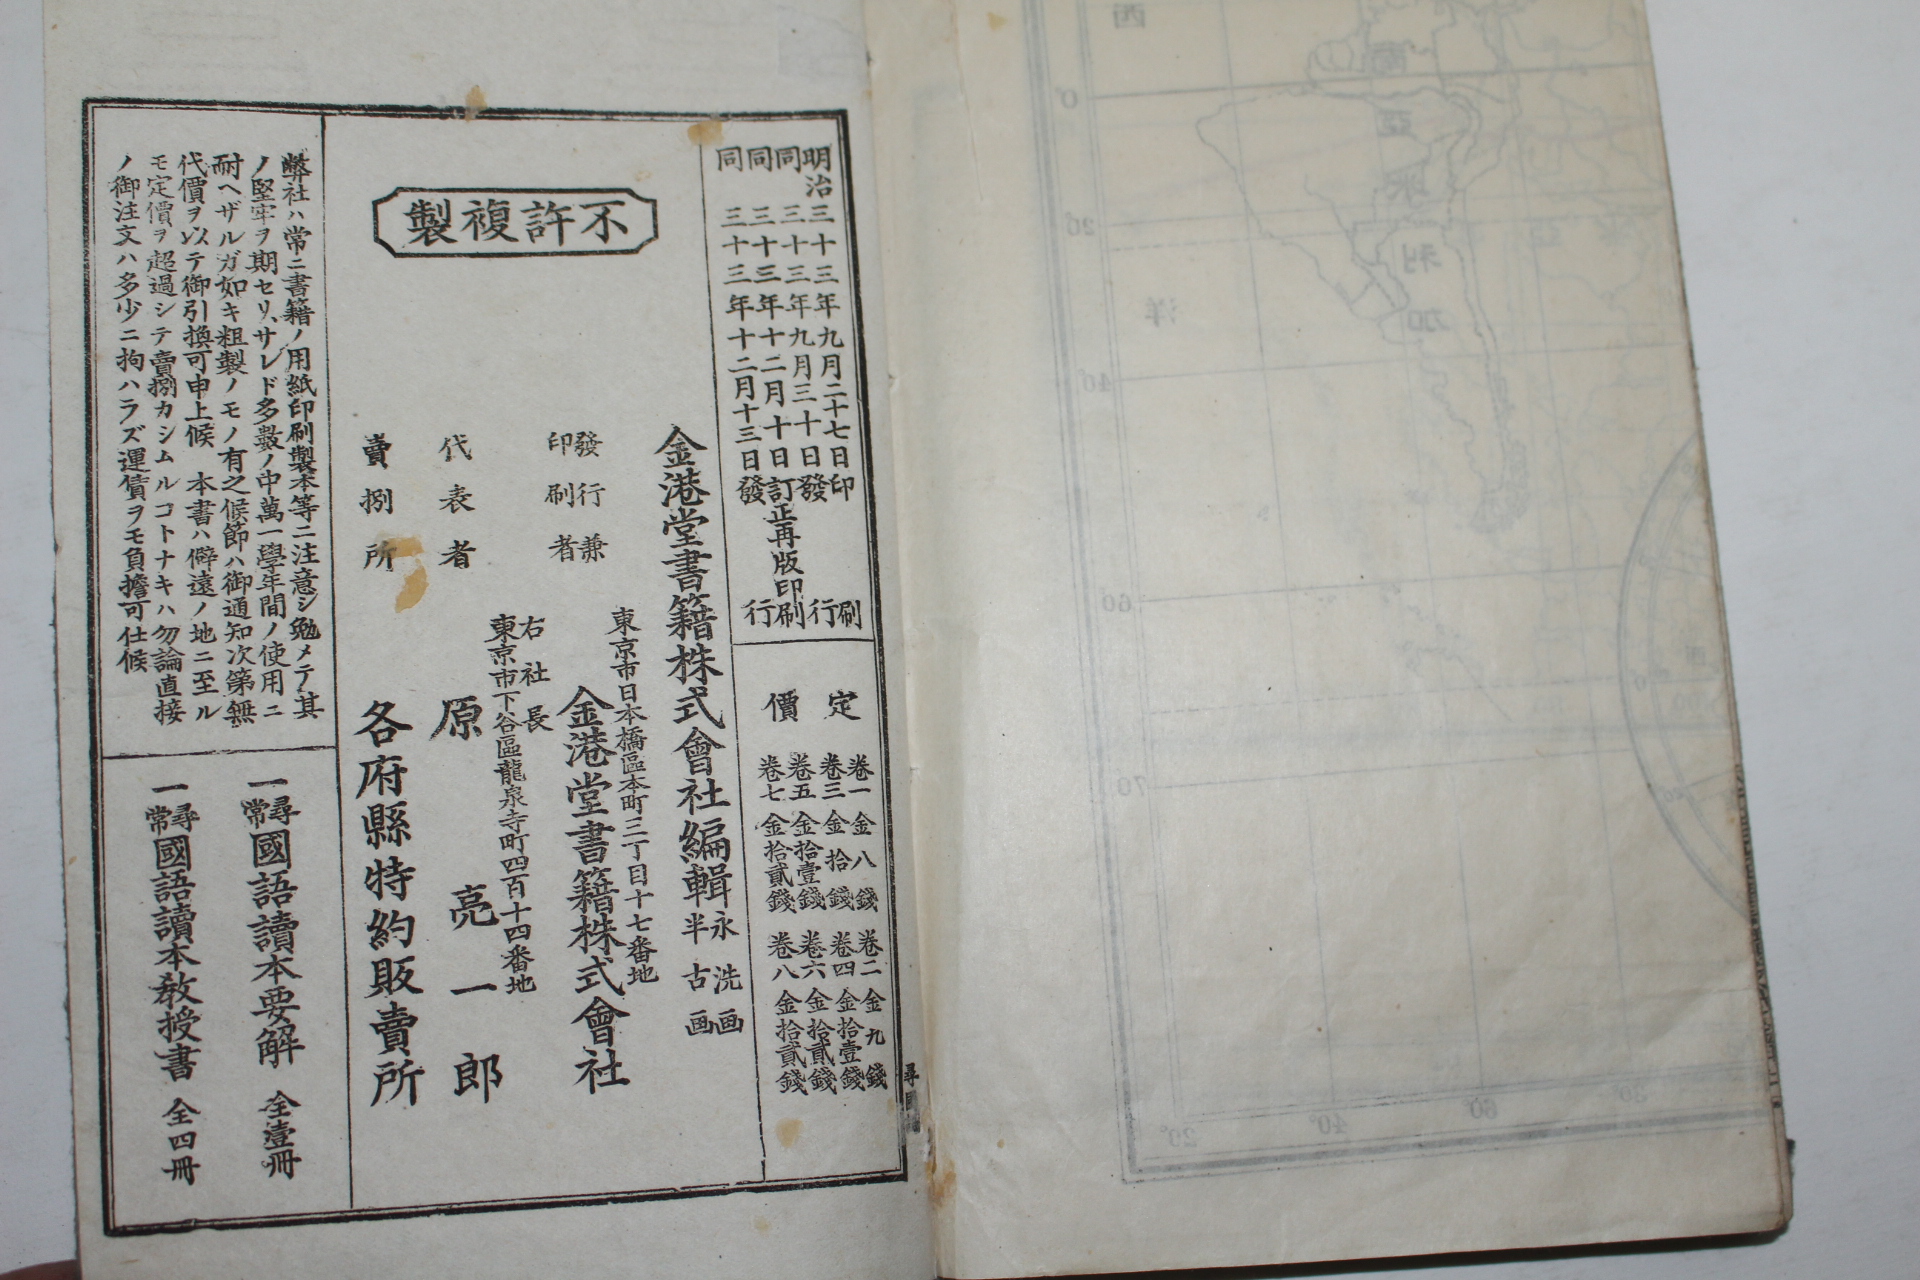 明治三十三年九月二十七日印刷
同三十三年九月三十日發行
同三十三年十二月十日訂正再版印刷
同三十三年十二月十三日發行
定價
卷一金八錢 卷二金九錢
卷三金拾錢 卷四金拾壹錢
卷五金拾壹錢 卷六金拾貳錢
卷七金拾貳錢 卷八金拾貳錢
不許複製
金港堂書籍株式會社編輯
永洗画
半古画
東京市日本橋區本町三丁目十七番地
發行兼印刷者 金港堂書籍株式會社
右社長
東京市下谷區龍泉寺町四百十四番地
代表者 原亮一郎
賣捌所 各府縣特約販賣所
弊社ハ常ニ書籍ノ用紙印刷製本等ニ注意シ勉メテ其
ノ堅牢ヲ期セリ、サレド多數ノ中萬一學年間ノ使用ニ
耐ヘザルガ如キ粗製ノモノ有之候節ハ御通知次第無
代價ヲ以テ御引換可申上候 本書ハ僻遠ノ地ニ至ル
モ定價ヲ超過シテ賣捌カシムルコトナキハ勿論直接
ノ御注文ハ多少ニ拘ハラズ運債ヲモ負擔可仕候
一尋常國語讀本要解 全壹冊
一尋常國語讀本敎授書 全四冊
西
南亞米利加
洋
0°
20°
40°
60
70
20°
40°
60°